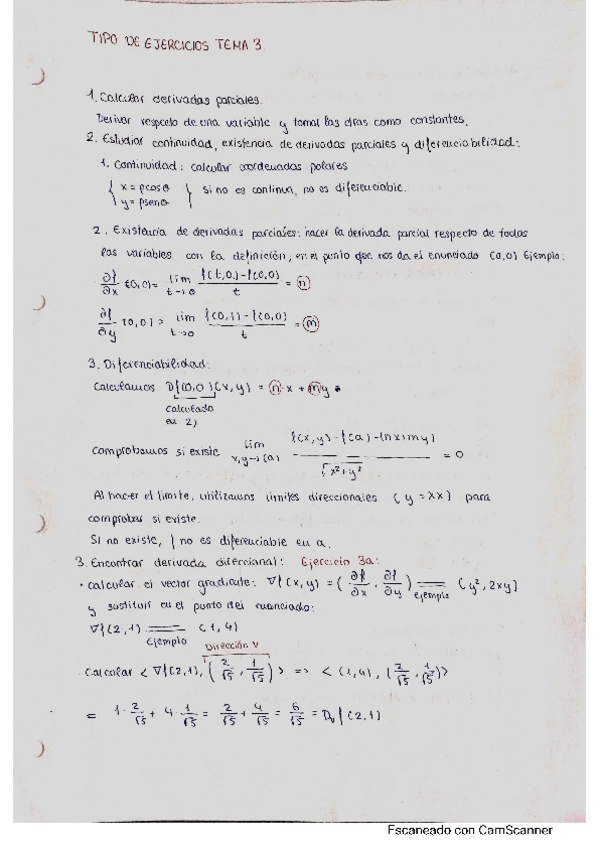 TIPO DE EJERCICIOS TEMA 3
1. Calcular derivadas parciales.
Derivar respecto de una variable y tomar las otras como constantes.
2. Estudiar continuidad, existencia de derivadas parciales y diferenciabilidad:
1. Continuidad: calcular coordenadas polares
{ x = ρcosθ
y = ρsenθ } si no es continua, no es diferenciable.
2. Existencia de derivadas parciales: hacer la derivada parcial respecto de todas
las variables con la definición, en el punto que nos da el enunciado (0,0) Ejemplo:
∂f/∂x (0,0) = lim t→0 f(t,0)-f(0,0)/t = n
∂f/∂y (0,0) = lim t→0 f(0,t)-f(0,0)/t = m
3. Diferenciabilidad:
Calculamos Df(0,0)(x,y) = n·x + my
calculado
en 2)
Comprobamos si existe lim x,y→(a) f(x,y)-f(a)-(nx+my)/√x²+y² = 0
Al hacer el límite, utilizamos límites direccionales (y=λx) para
comprobar si existe.
Si no existe, f no es diferenciable en a.
3. Encontrar derivada direccional: Ejercicio 3a:
• calcular el vector gradiente: ∇f(x,y) = (∂f/∂x, ∂f/∂y) = Ejemplo (y², 2xy)
y sustituir en el punto del enunciado:
∇f(2,1) = Ejemplo (1,4)
Dirección V
Calcular <∇f(2,1), (2/√5, 1/√5)> => <(1,4), (2/√5, 1/√5)>
= 1·2/√5 + 4·1/√5 = 2/√5 + 4/√5 = 6/√5 = Dvf(2,1)
Escaneado con CamScanner